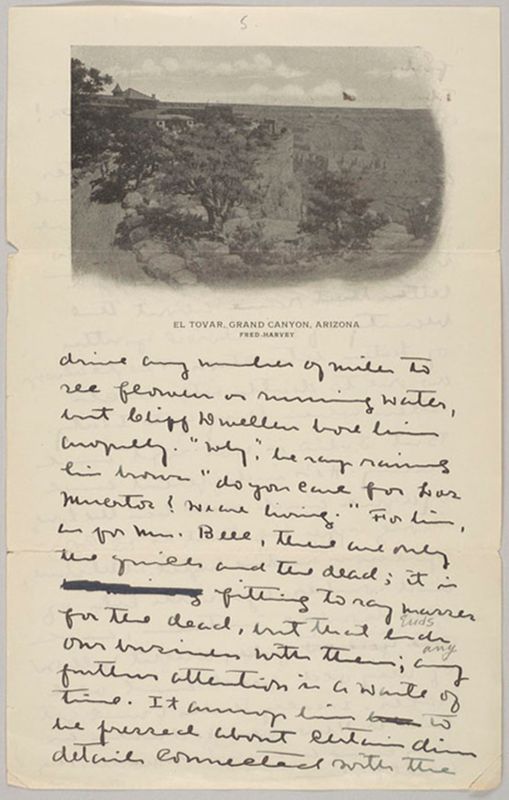 5
EL TOVAR, GRAND CANYON, ARIZONA
FRED HARVEY
drive any number of miles to
see flowers or running water,
but Cliff Dwellers bore him
awfully. "Why", he says raising
his brows "do you care for Los
Muertos? We are living." For him,
as for Mrs. Bell, there are only
the quick and the dead; it is
fitting to say masses
ends
for the dead, but that ends
any
our business with them; any
further attention is a waste of
time. It annoys him to
be pressed about certain dim
details connected with the